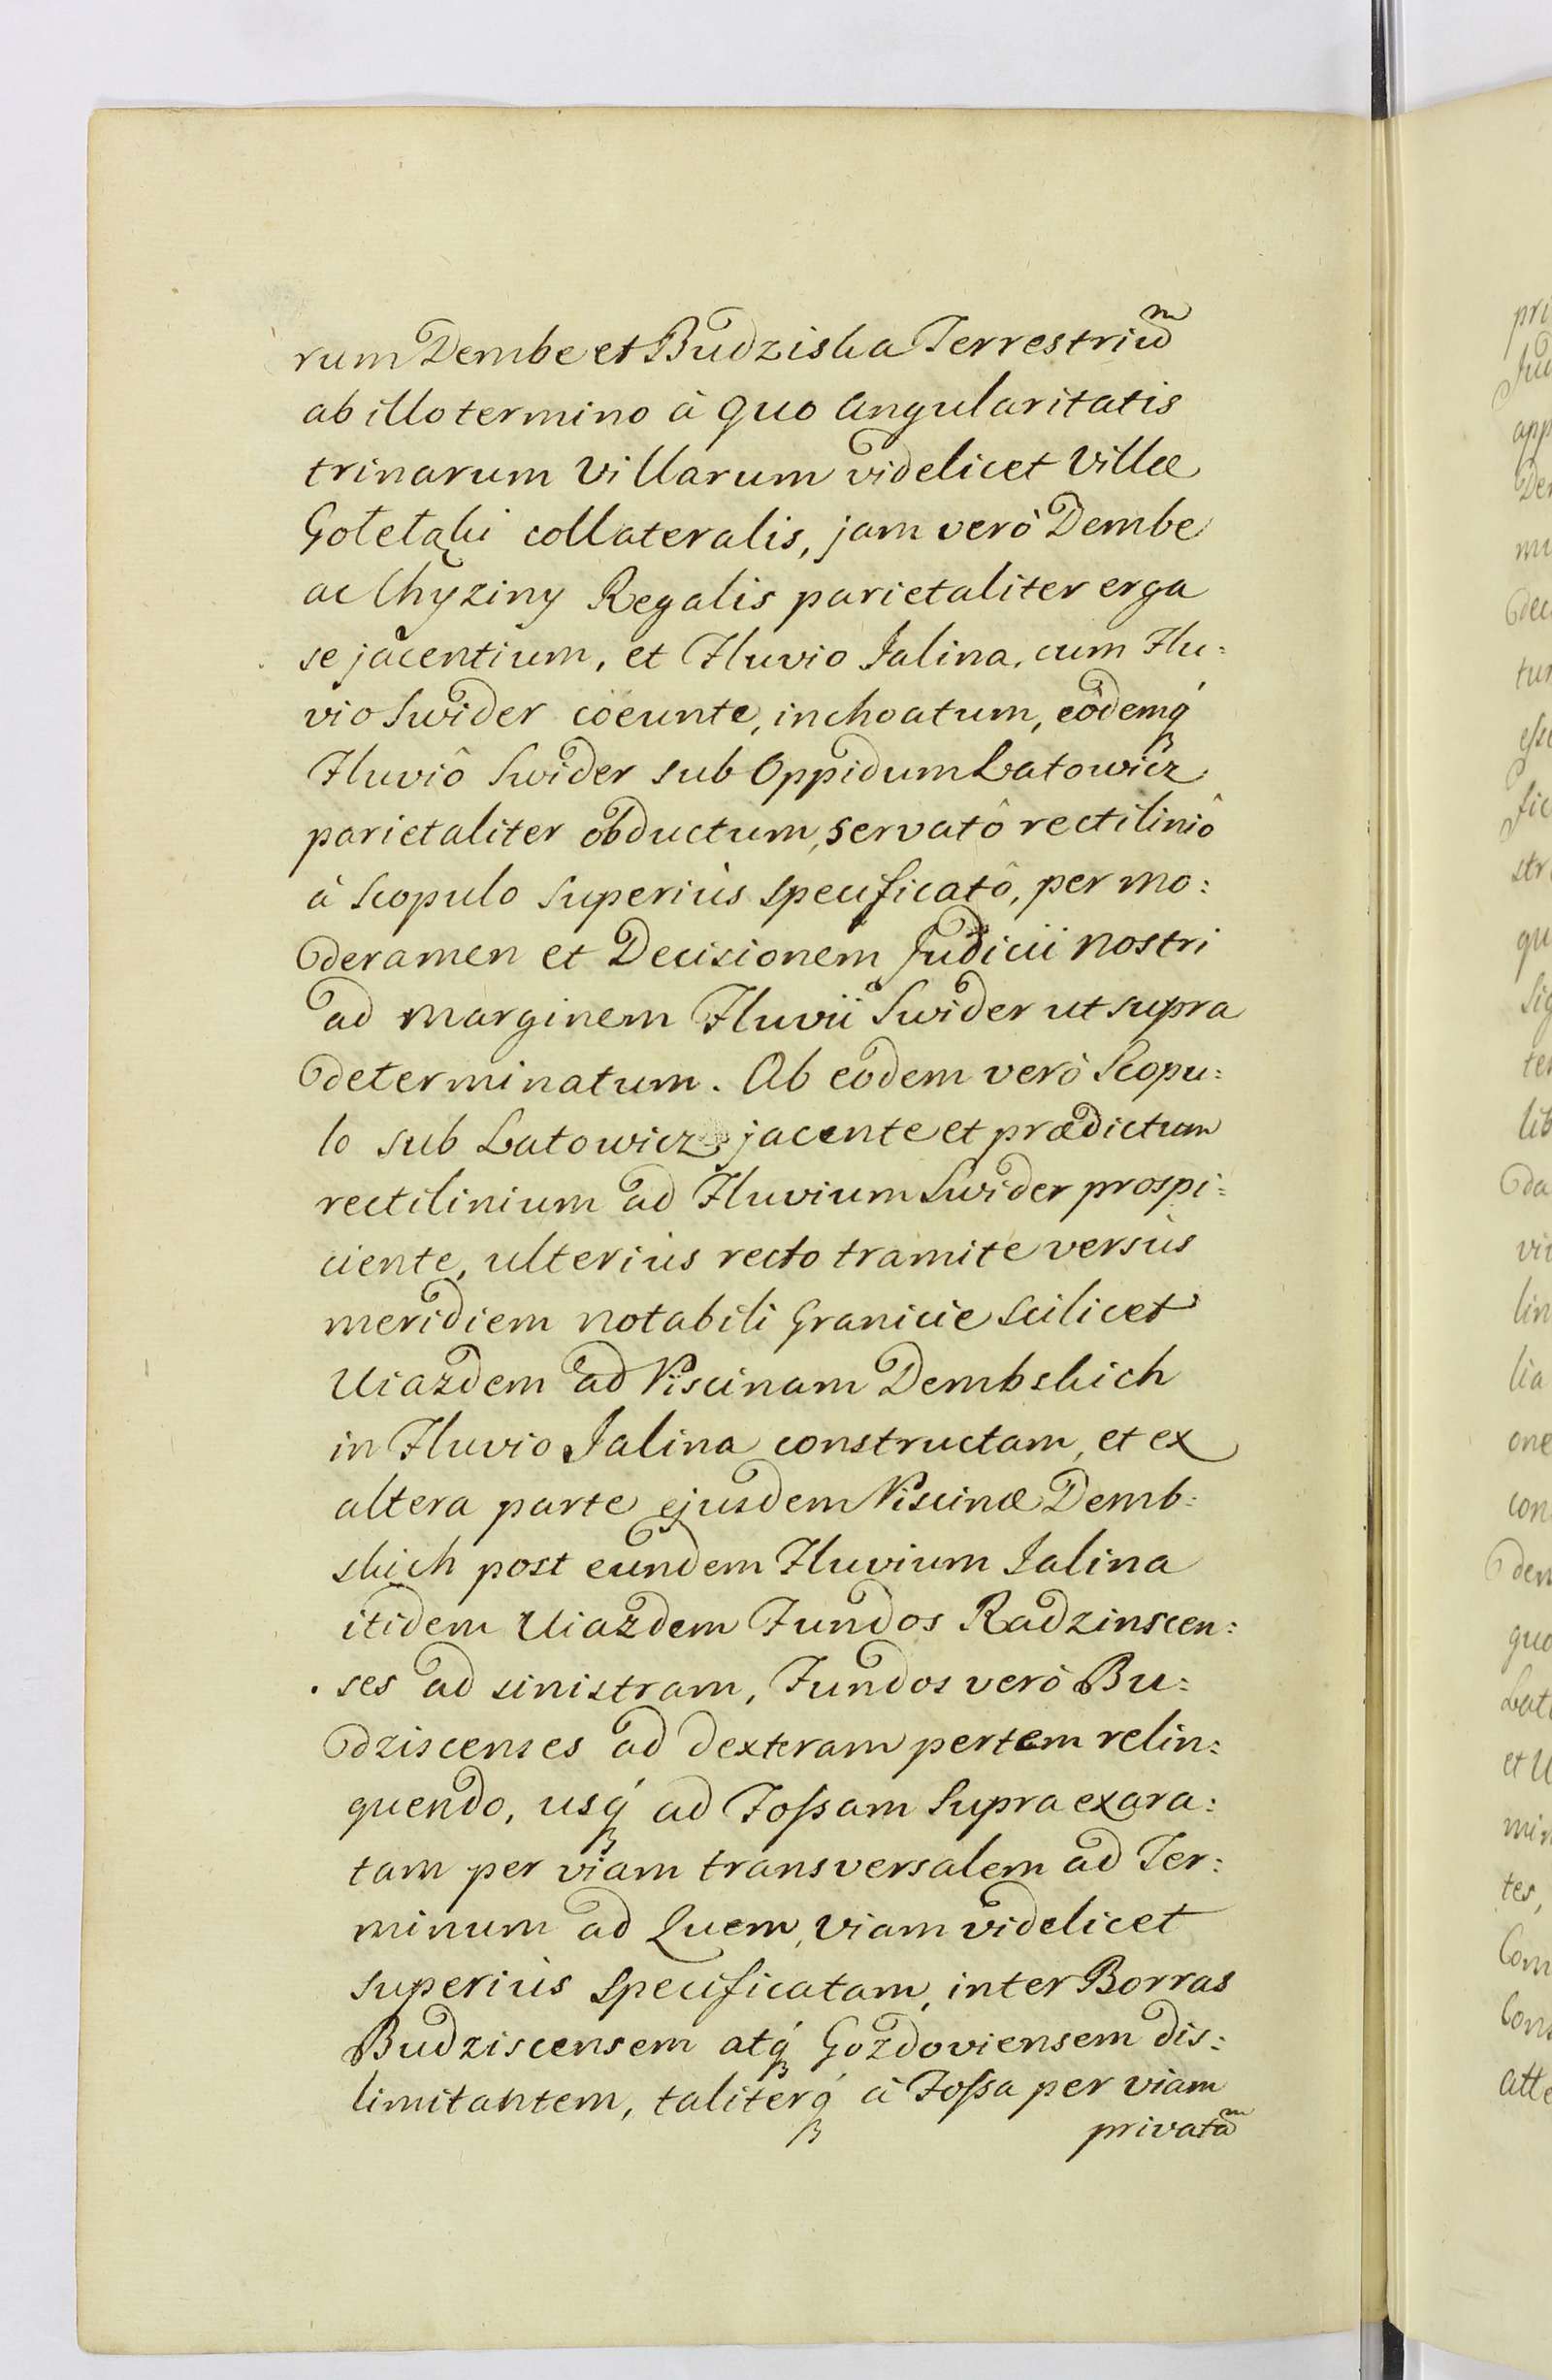 rum Dembe et Budziska Terrestriũ
ab illo termino à quo Angularitatis
trinarum Villarum videlicet Villæ
Gołetąki collateralis, jam verò Dembe
ac Chyziny Regalis parietaliter erga
se jacentium, et Fluvio Jalina, cum Flu:
vio Swider coeunte, inchoatum, eôdemq́
Fluviô Swider sub Oppidum Latowicz
parietaliter obductum, servatô rectiliniô
à Scopulo superiùs specificatô, per mo:
deramen et Decisionem Judicii nostri
ad marginem Fluvii Swider ut supra
determinatum. Ab eodem verò Scopu:
lo sub Latowicz jacente et prædictum
rectilinium ad Fluvium Swider prospi:
ciente, ulteriùs recto tramite versùs
meridiem notabili Granicie scilicet
Uiazdem ad Piscinam Dembskich
in Fluvio Jalina constructam, et ex
altera parte ejusdem Piscinæ Demb:
skich post eundem Fluvium Jalina
itidem Uiazdem Fundos Radzinscen:
ses ad sinistram, Fundos verò Bu:
dziscenses ad dexteram pertem relin:
quendo, usq́ ad Fossam supra exara:
tam per viam transversalem ad Ter:
minum ad Quem, viam videlicet
superiùs specificatam, inter Borras
Budziscensem atq́ Gozdoviensem dis:
limitantem, taliterq́ à Fossa per viam
privatã